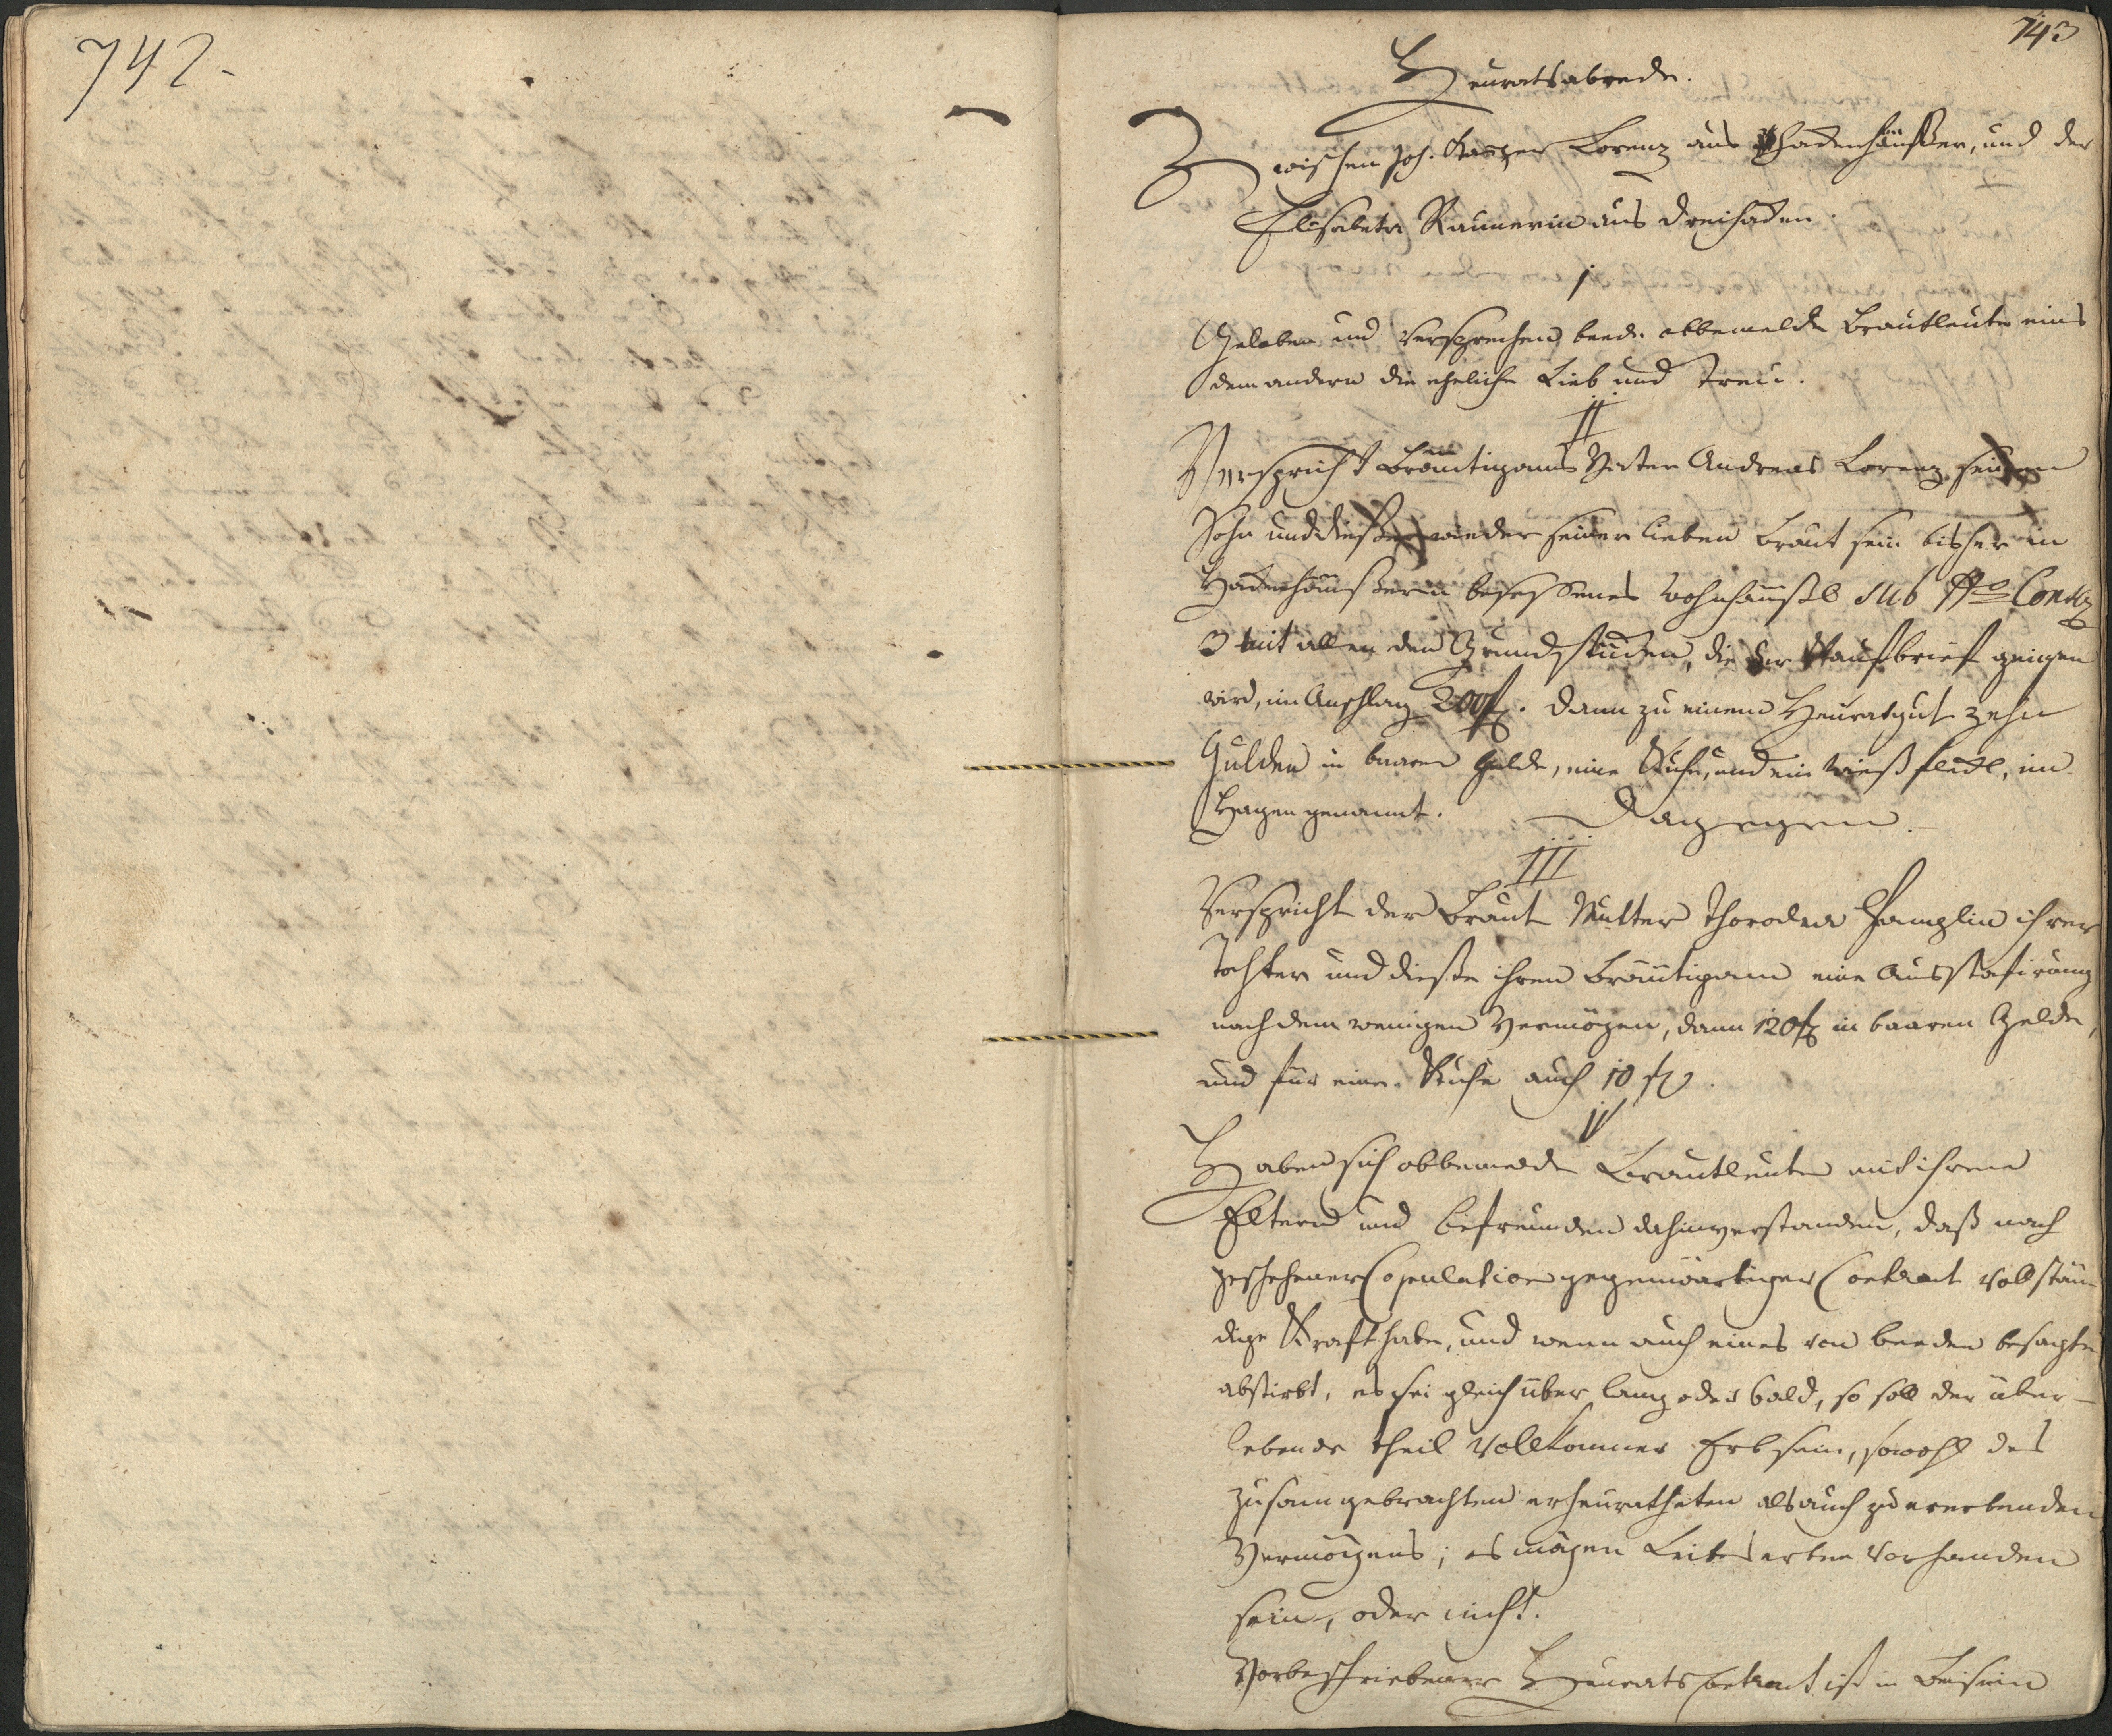 742.
743
Heuratsabrede.
Zwischen Joh. Kasper Lorenz aus Hadenhäußer, und der
Elisabeta Raumerin aus Dreihaken.
I
Geloben und versprechen beede obbemelde Brautleute eins
dem andern die eheliche Lieb und Treu.
II
Verspricht Bräutigams Vater Andreas Lorenz seinem
Sohn und dießer wieder seiner lieben Braut sein bisher in
besessenes Wohnhäußl sub Nro Conscr
3 mit allen den Grundstücken, die der Kaufbrief zeigen
wird, im Anschlag 200 f. Dann zu einem Heuratgut zehn
Gulden in baaren Gelde, eine Kuhe, und ein Wießfleckl, im
Hagen genannt. Dagegen.
III
Verspricht der Braut Mutter Thorodea ihrer
Tochter und dieße ihren Bräutigam eine Ausstafirung
nach dem wenigen Vermögen, dann 120 f in baaren Gelde,
und für eine Kuhe auch 10 f.
IV
Haben sich obbemelde Brautleute mit ihren
Eltern und befreunden dahinverstanden, daß nach
geschehener Copulation gegenwärtiger Contract vollstän
dige Kraft habe, und wenn auch eines von beeden besagten
abstirbt, es sei gleich über lang oder bald, so soll der über-
lebende Theil vollkommer Erb sein, sowohl des
zusamgebrachten erheuratheten als auch zu ererbenden
Vermögens; es mögen Leibserben vorhanden
sein, oder nicht.
Vorbeschriebener Heurats Contract ist in Beisein